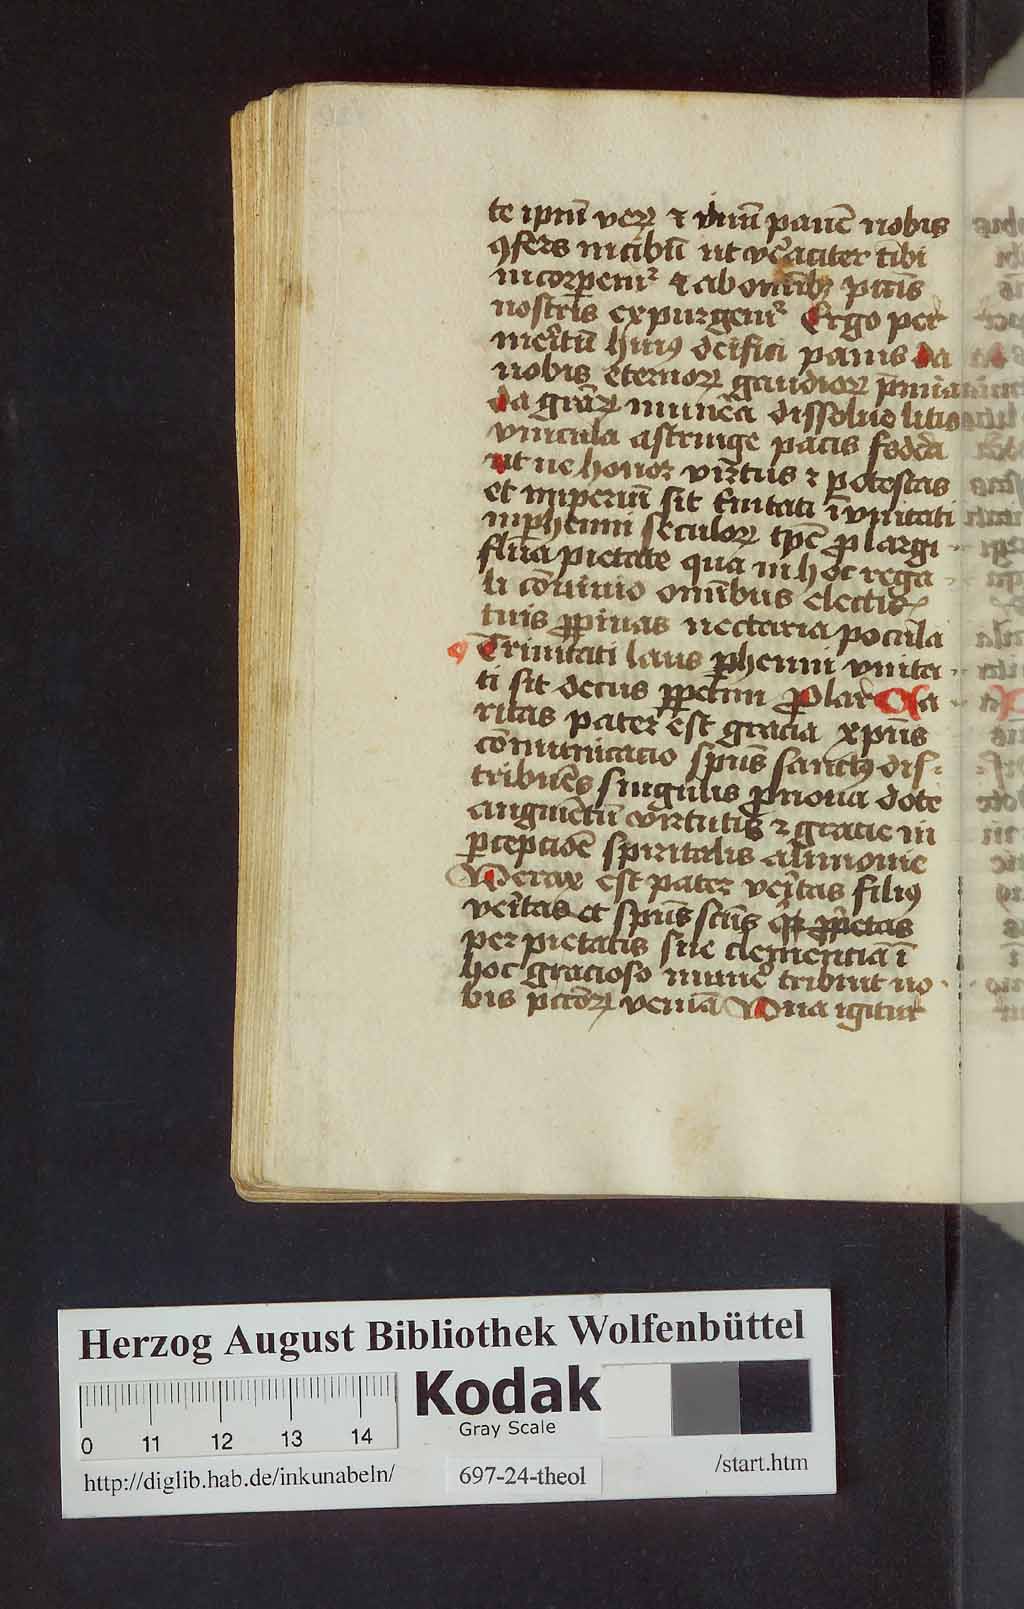 te ip̄m̄ verꝝ ⁊ vinū panē nobis
ꝯfers in cibū ut veraciter tibi
incorꝑemᷣ ⁊ ab omībꝫ pctīs
nostris expurgemᷣ Ergo per
meritū huiꝰ deifici panis da
nobis eternorꝝ gaudiorꝝ p̄mia
da grārꝝ munera dissolue litis
vincula astringe pacis federa
ut ne honor virtus ⁊ potestas
et imperiū sit t̄nitati ī vnitati
in ꝑhenni seculorꝝ tp̄e ꝓ largi
flua pietate qua in hoc rega
li cōuiuio omībus electis
tuis ꝓpinas nectaria pocula
Trinitati laus ꝑhenni vnita
ti sit decus ꝑpetim Ca
ritas pater est gracia xp̄us
cōmunicacio sp̄us sanctꝰ dis
tribuēs singulis ꝓ noua dote
augmētū virtutis ⁊ gracie in
ꝑcepcōe spiritalis alimonie
Verax est pater veritas filiꝰ
veritas et sp̄us scūs
per pietatis sue clemenciā ī
hoc gracioso mune tribuit no
bis pctōrꝝ veniā Vna igitur
Herzog August Bibliothek Wolfenbüttel
Kodak
Gray Scale
0 11 12 13 14
http://diglib.hab.de/inkunabeln/
697-24-theol
/start.htm